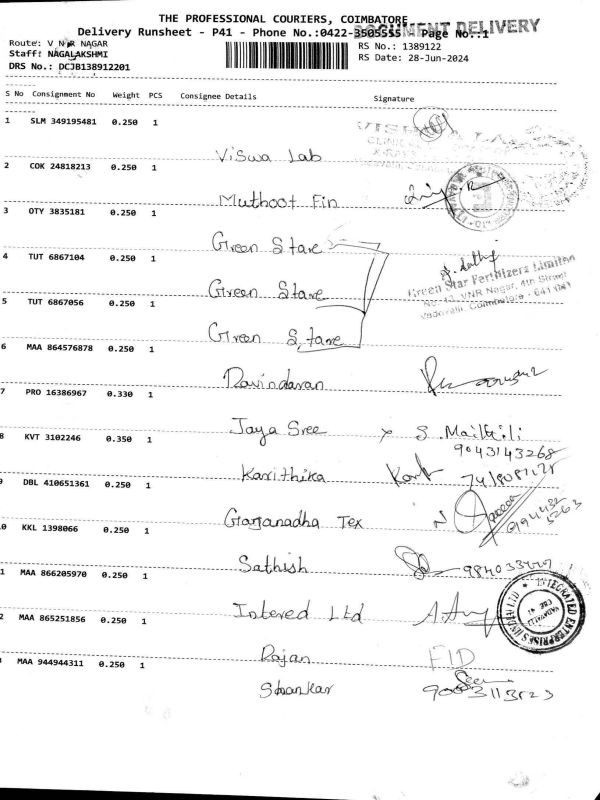 THE PROFESSIONAL COURIERS, COIMBATORE
DOCUMENT DELIVERY
Delivery Runsheet - P41 - Phone No.:0422-3505555 Page No.:1
Route: V N R NAGAR
RS No.: 1389122
Staff: NAGALAKSHMI
RS Date: 28-Jun-2024
DRS No.: DCJB138912201
S No Consignment No Weight PCS Consignee Details Signature
1 SLM 349195481 0.250 1
Viswa Lab
2 COK 24818213 0.250 1
Muthoot Fin
3 OTY 3835181 0.250 1
Green Stare
4 TUT 6867104 0.250 1
Green Stare
Green Star Fertilizers Limited
No. 13, VNR Nagar, 4th Street
Vadavalli, Coimbatore - 641 041
5 TUT 6867056 0.250 1
Green Stare
6 MAA 864576878 0.250 1
Ravindaran
7 PRO 16386967 0.330 1
Jaya Sree x S. Maithili
9043143268
8 KVT 3102246 0.350 1
Karithika
9 DBL 410651361 0.250 1
Gajanadha Tex
0 KKL 1398066 0.250 1
Sathish
1 MAA 866205970 0.250 1
Intered Ltd
INTEGRATED ENTERPRISES (INDIA) LTD
2 MAA 865251856 0.250 1
Rajan
3 MAA 944944311 0.250 1
Shankar